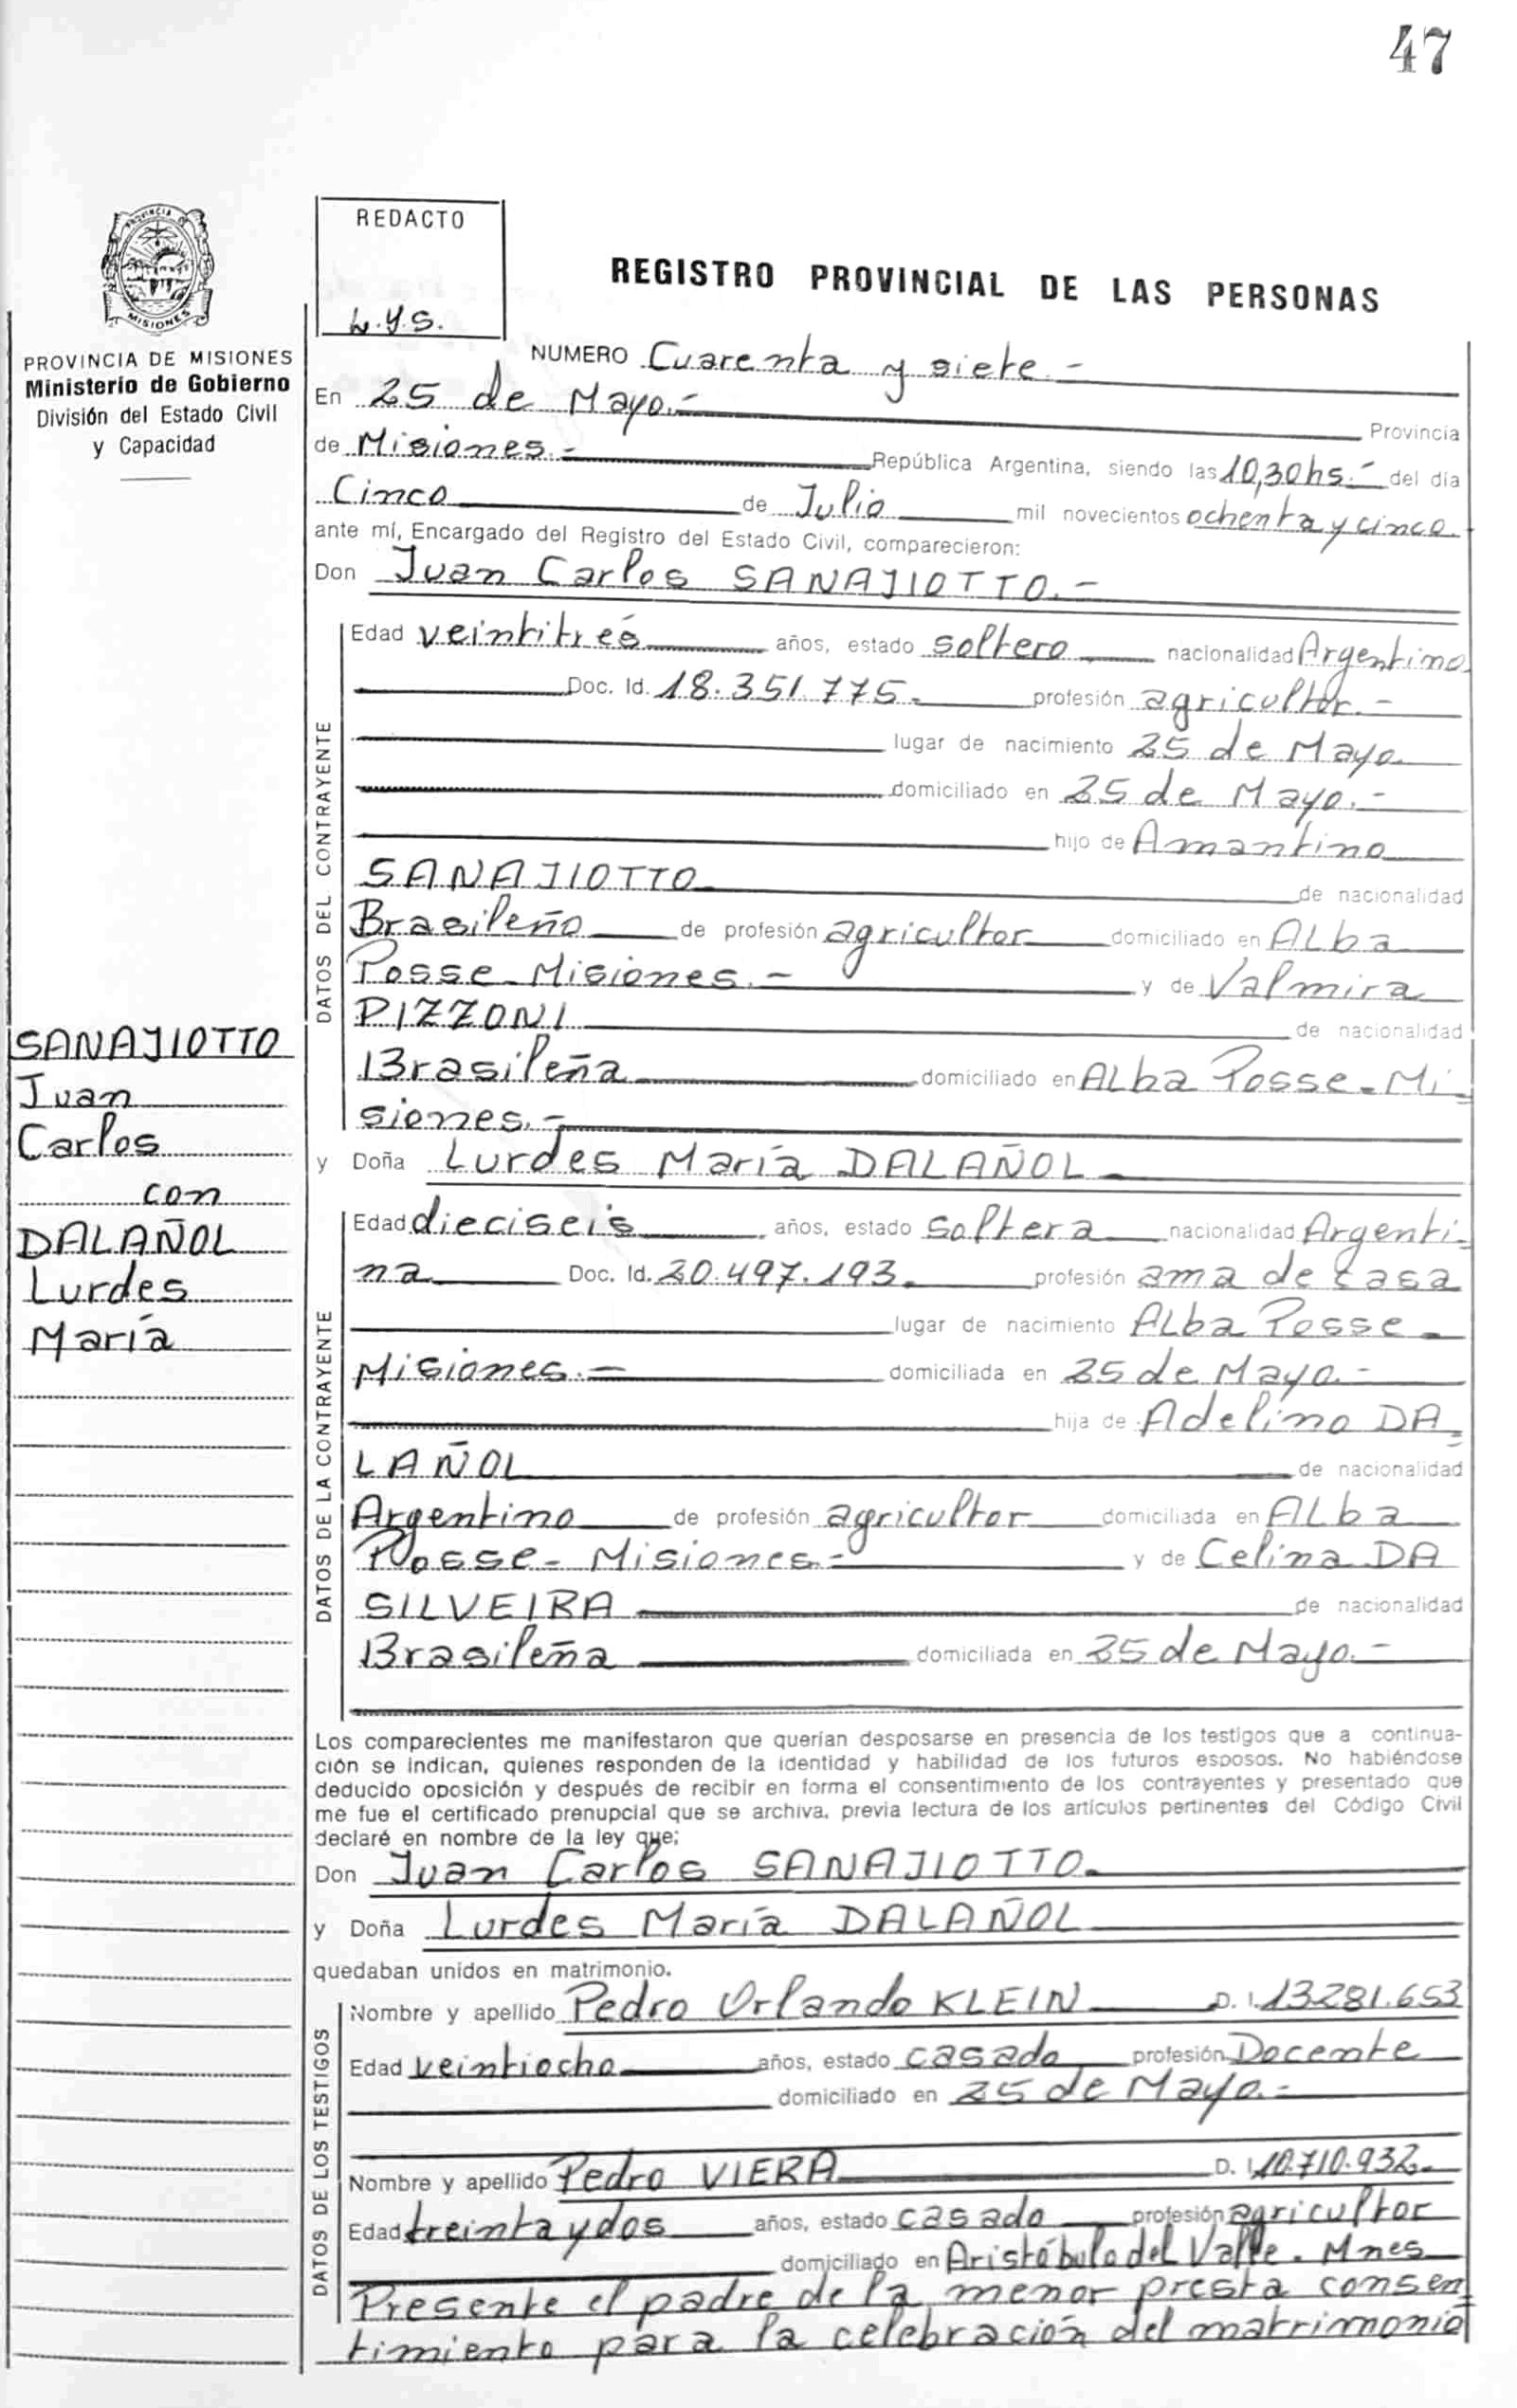 47
PROVINCIA DE
MISIONES
REDACTO
L.y.S.
REGISTRO PROVINCIAL DE LAS PERSONAS
PROVINCIA DE MISIONES
Ministerio de Gobierno
División del Estado Civil
y Capacidad
NUMERO Cuarenta y siete.-
En 25 de Mayo.- Provincia
de Misiones.- República Argentina, siendo las 10,30hs.- del día
Cinco de Julio mil novecientos ochenta y cinco.
ante mí, Encargado del Registro del Estado Civil, comparecieron:
Don Juan Carlos SANAJIOTTO.-
DATOS DEL CONTRAYENTE
Edad veintitrés años, estado soltero nacionalidad Argentino
Doc. Id. 18.351.775.- profesión agricultor.-
lugar de nacimiento 25 de Mayo.
domiciliado en 25 de Mayo.-
hijo de Amantino
SANAJIOTTO de nacionalidad
Brasileño de profesión agricultor domiciliado en ALba
Posse-Misiones.- y de Valmira
PIZZONI de nacionalidad
Brasileña domiciliado en ALba Posse-Mi-
siones.-
SANAJIOTTO
Juan
Carlos
con
DALAÑOL
Lurdes
María
y Doña Lurdes María DALAÑOL
DATOS DE LA CONTRAYENTE
Edad dieciseis años, estado Soltera nacionalidad Argenti-
na Doc. Id. 20.497.193. profesión ama de casa
lugar de nacimiento ALba Posse-
Misiones.- domiciliada en 25 de Mayo.-
hija de Adelino DA-
LAÑOL de nacionalidad
Argentino de profesión agricultor domiciliada en ALba
Posse- Misiones.- y de Celina DA
SILVEIRA de nacionalidad
Brasileña domiciliada en 25 de Mayo.-
Los comparecientes me manifestaron que querían desposarse en presencia de los testigos que a continua-
ción se indican, quienes responden de la identidad y habilidad de los futuros esposos. No habiéndose
deducido oposición y después de recibir en forma el consentimiento de los contrayentes y presentado que
me fue el certificado prenupcial que se archiva, previa lectura de los artículos pertinentes del Código Civil
declaré en nombre de la ley que;
Don Juan Carlos SANAJIOTTO.
y Doña Lurdes María DALAÑOL
quedaban unidos en matrimonio.
DATOS DE LOS TESTIGOS
Nombre y apellido Pedro Orlando KLEIN D. I. 13281.653
Edad veintiocho años, estado casado profesión Docente
domiciliado en 25 de Mayo.-
Nombre y apellido Pedro VIERA D. I. 10.710.932.
Edad treinta y dos años, estado casado profesión agricultor
domiciliado en Aristóbulo del Valle. Mnes
Presente el padre de la menor presta consen
timiento para la celebración del matrimonio